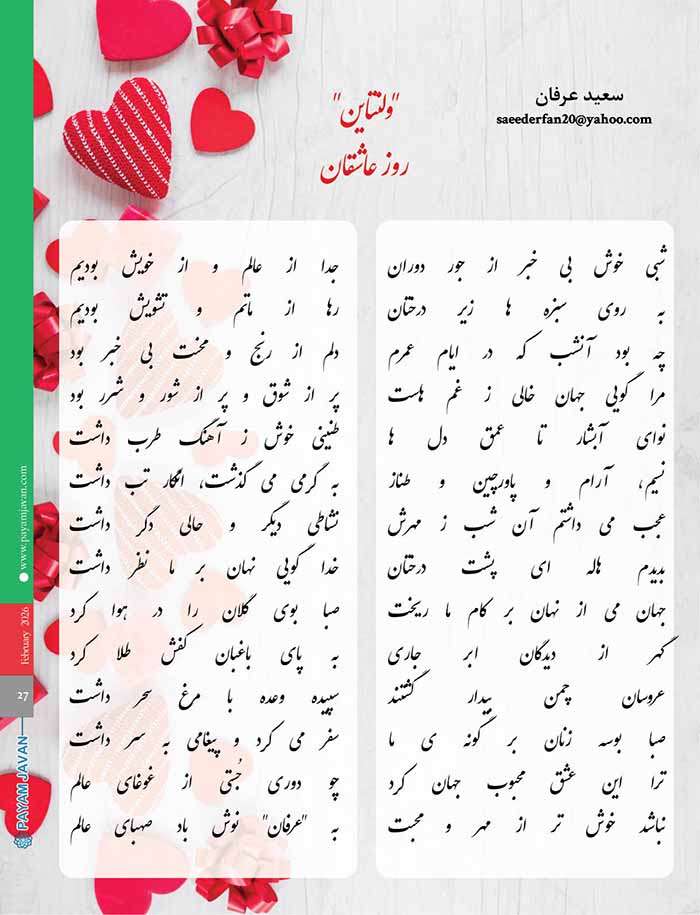 سعید عرفان
saeederfan20@yahoo.com
"ولنتاین"
روز عاشقان
شبی خوش بی خبر از جور دوران
جدا از عالم و از خویش بودیم
به روی سبزه ها زیر درختان
رها از ماتم و تشویش بودیم
چه بود آنشب که در ایام عمرم
دلم از رنج و محنت بی خبر بود
مرا گویی جهان خالی ز غم هاست
پر از شوق و پر از شور و شرر بود
نوای آبشار تا عمق دل ها
طنینی خوش ز آهنگ طرب داشت
نسیم، آرام و پاورچین و طناز
به گرمی می گذشت، انگار تب داشت
عجب می داشتم آن شب ز مهرش
نشاطی دیگر و حالی دگر داشت
بدیدم هاله ای پشت درختان
خدا گویی نهان بر ما نظر داشت
جهان می از نهان بر کام ما ریخت
صبا بوی گلان را در هوا کرد
گهر از دیدگان ابر جاری
به پای باغبان کفش طلا کرد
عروسان چمن بیدار گشتند
سپیده وعده با مرغ سحر داشت
صبا بوسه زنان بر گونه ی ما
سفر می کرد و پیغامی به سر داشت
ترا این عشق محبوب جهان کرد
چو دوری جُستی از غوغای عالم
نباشد خوش تر از مهر و محبت
به "عرفان" نوش باد صهبای عالم
www.payamjavan.com
February 2026
27
PAYAM JAVAN